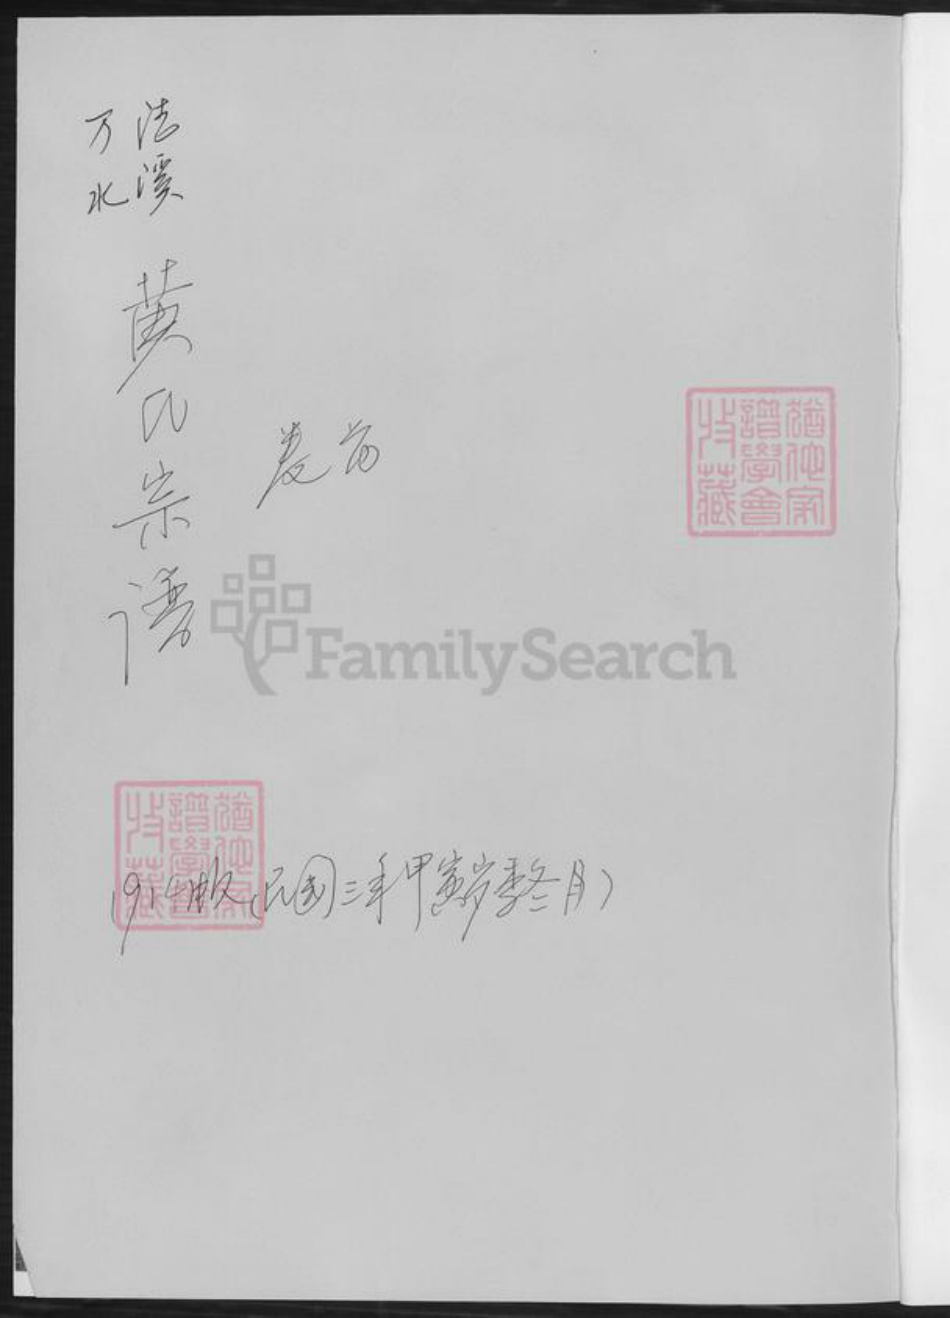 万 法
水 溪
黄氏宗谱
猶他家
譜學會
收藏
FamilySearch
猶他家
譜學會
收藏
1914版(民国三年甲寅岁季冬月)